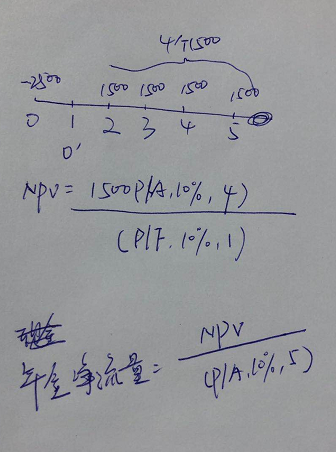 4个1500
-2500 1500 1500 1500 1500
0 1 2 3 4 5
0'
NPV = 1500P/A,10%,4)
(P/F.10%,1)
年金净流量 = NPV
(P/A,10%,5)